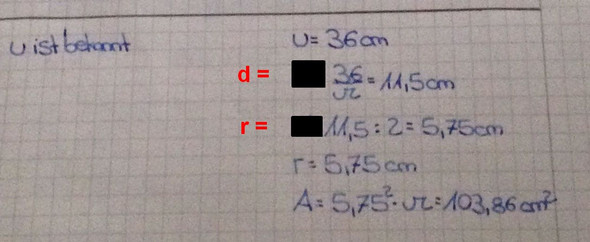 u ist bekannt
U = 36 cm
d = 36/π = 11,5 cm
r = 11,5 : 2 = 5,75 cm
r = 5,75 cm
A = 5,75² · π = 103,86 cm²